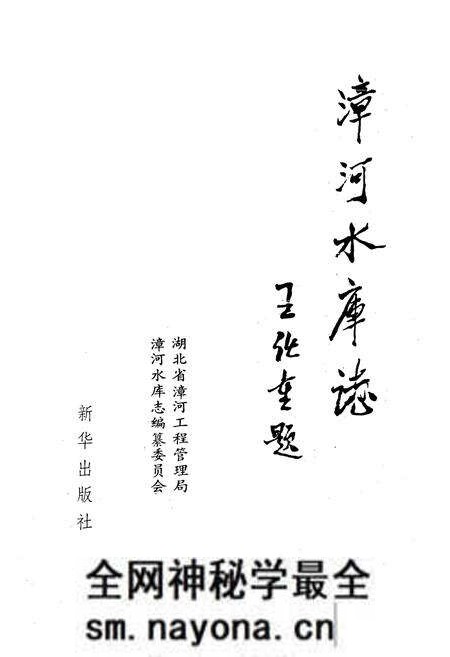 漳河水庫誌
王任重题
湖北省漳河工程管理局
漳河水库志编纂委员会
新华出版社
全网神秘学最全
sm.nayona.cn